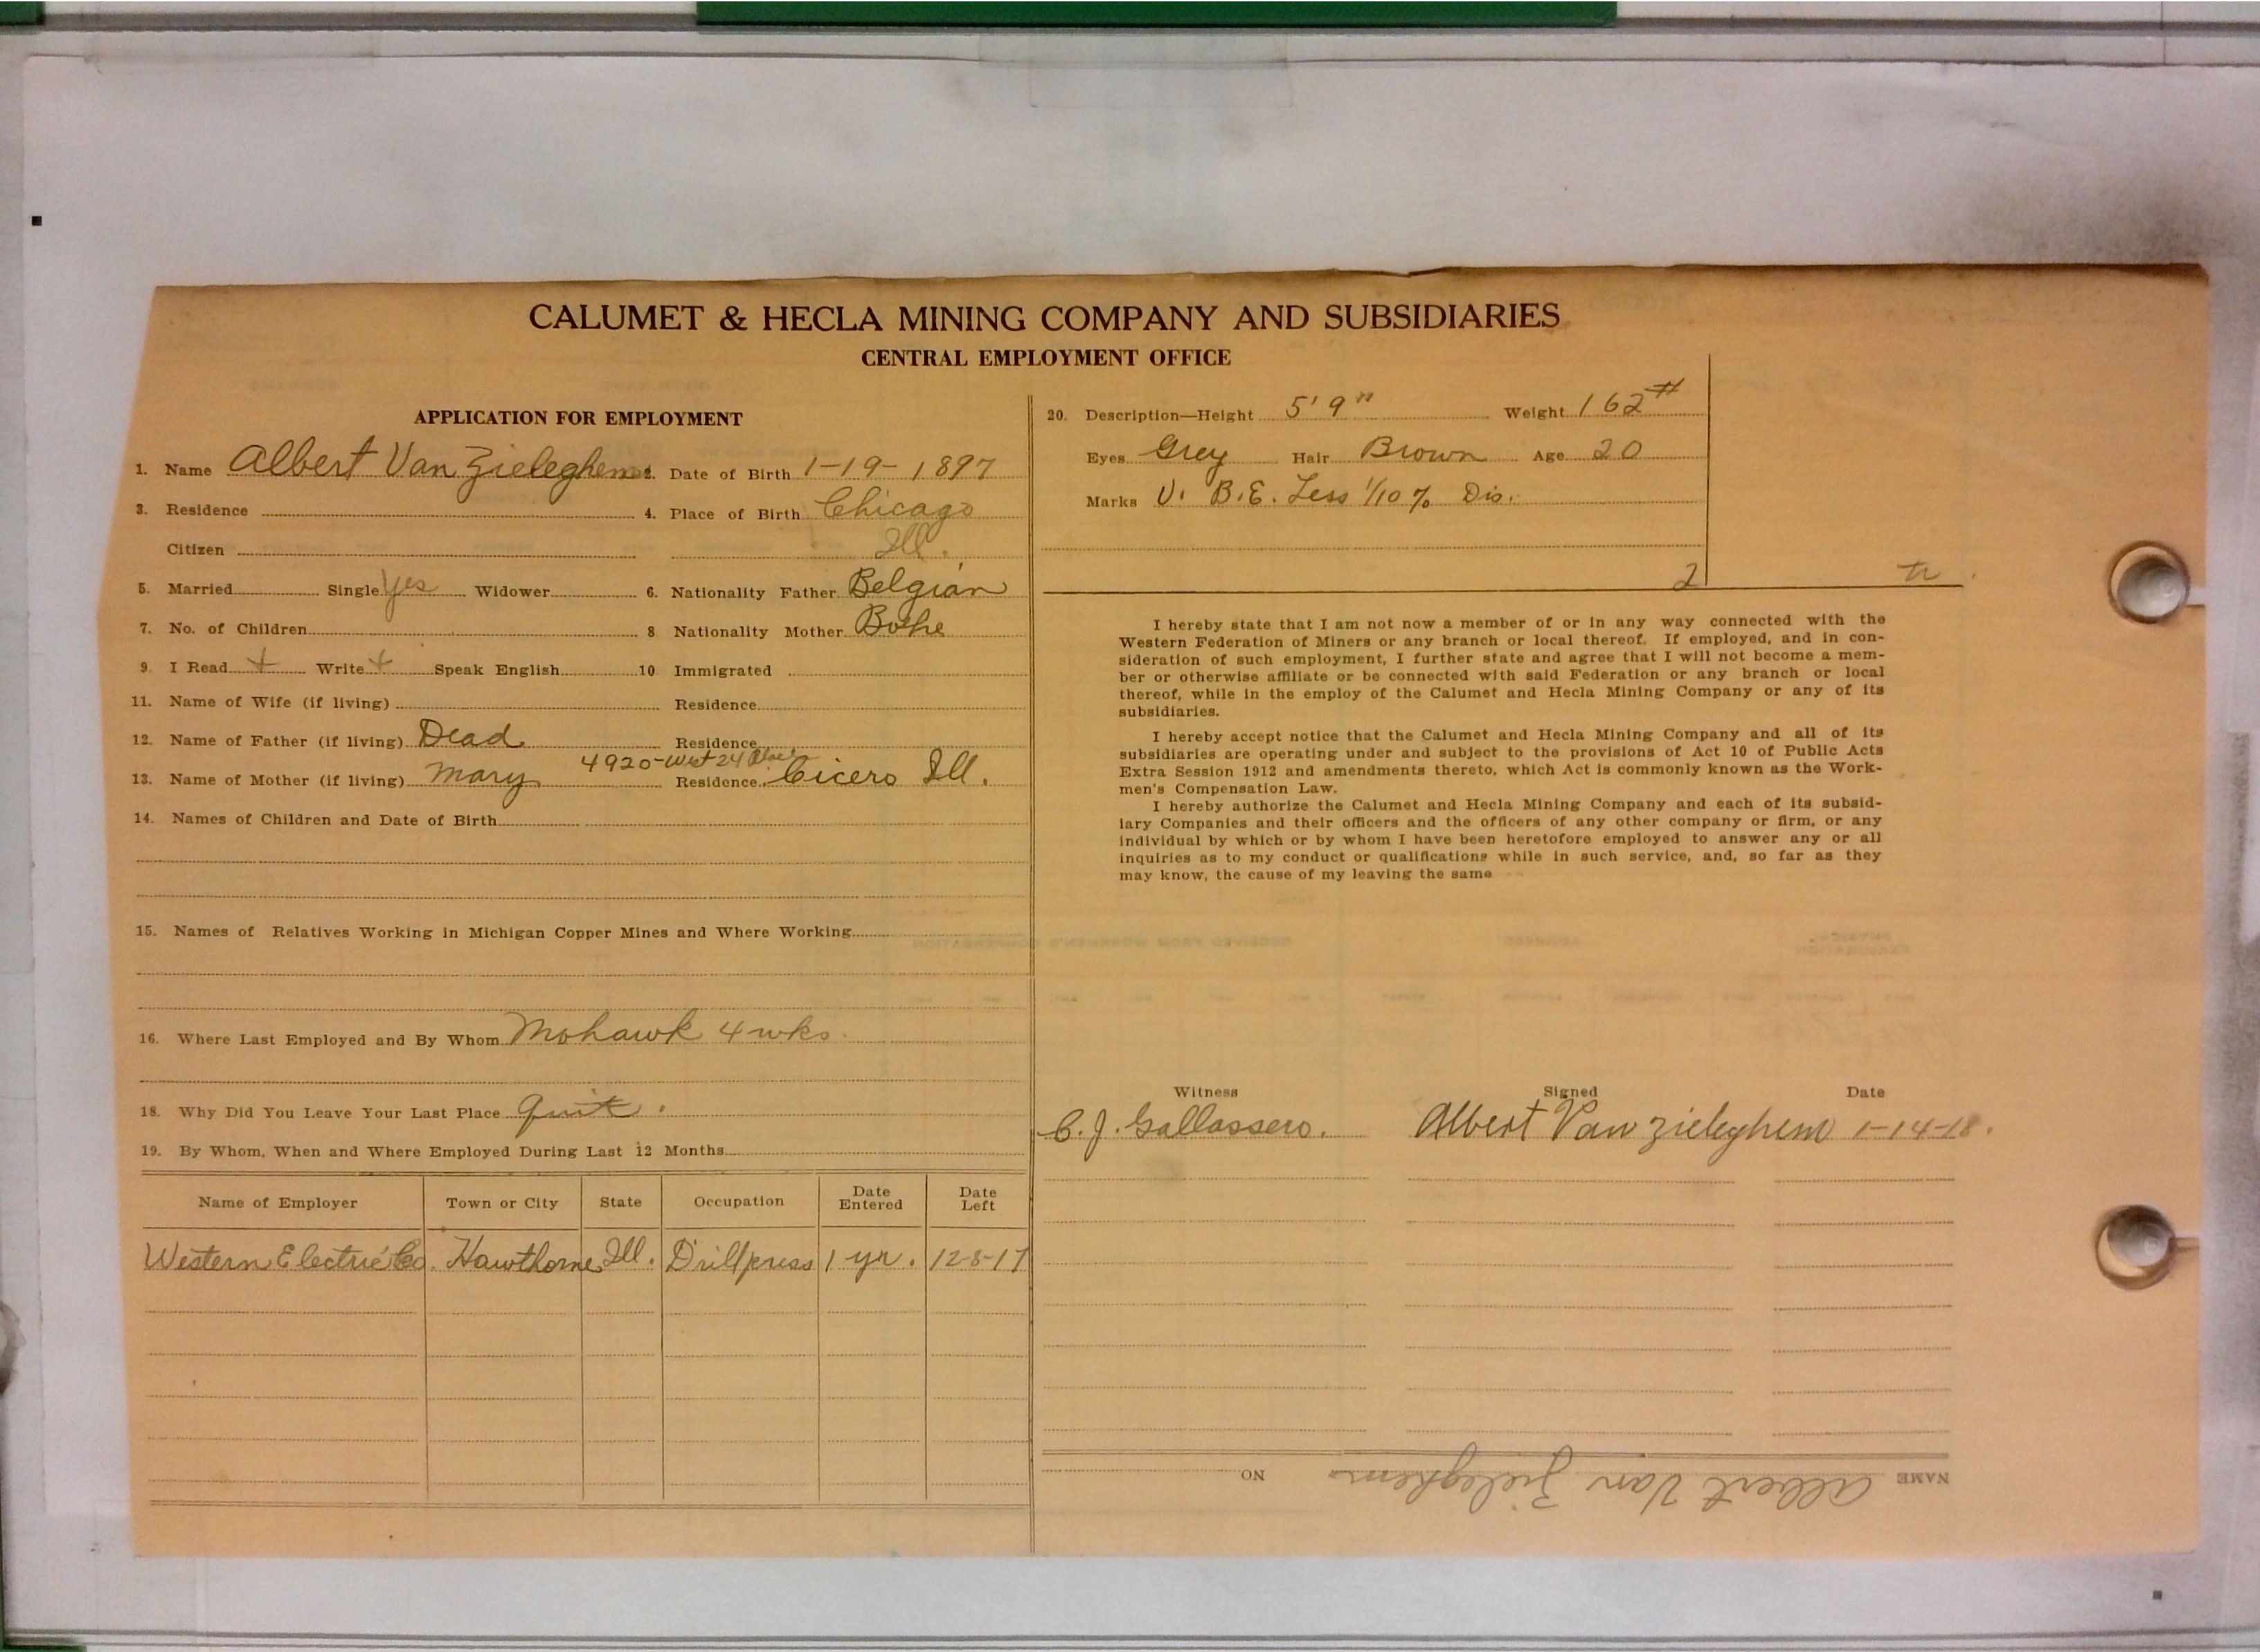 CALUMET & HECLA MINING COMPANY AND SUBSIDIARIES
CENTRAL EMPLOYMENT OFFICE
APPLICATION FOR EMPLOYMENT
1. Name Albert Van Zieleghem 2. Date of Birth 1-19-1897
3. Residence 4. Place of Birth Chicago
Citizen Ill.
5. Married Single Yes Widower 6. Nationality Father Belgian
7. No. of Children 8 Nationality Mother Bohe
9. I Read + Write + Speak English 10 Immigrated
11. Name of Wife (if living) Residence
12. Name of Father (if living) Dead Residence
4920-West 24
13. Name of Mother (if living) Mary Residence Cicero Ill.
14. Names of Children and Date of Birth
15. Names of Relatives Working in Michigan Copper Mines and Where Working
16. Where Last Employed and By Whom Mohawk 4 wks
18. Why Did You Leave Your Last Place Quit.
19. By Whom, When and Where Employed During Last 12 Months
Name of Employer Town or City State Occupation Date Entered Date Left
Western Electric Co. Hawthorne Ill. Drillpress 1 yr. 12-8-17
20. Description—Height 5' 9" Weight 162#
Eyes Grey Hair Brown Age 20
Marks V. B.E. Less 1/10 % Dis.
2
I hereby state that I am not now a member of or in any way connected with the
Western Federation of Miners or any branch or local thereof. If employed, and in con-
sideration of such employment, I further state and agree that I will not become a mem-
ber or otherwise affiliate or be connected with said Federation or any branch or local
thereof, while in the employ of the Calumet and Hecla Mining Company or any of its
subsidiaries.
I hereby accept notice that the Calumet and Hecla Mining Company and all of its
subsidiaries are operating under and subject to the provisions of Act 10 of Public Acts
Extra Session 1912 and amendments thereto, which Act is commonly known as the Work-
men's Compensation Law.
I hereby authorize the Calumet and Hecla Mining Company and each of its subsid-
iary Companies and their officers and the officers of any other company or firm, or any
individual by which or by whom I have been heretofore employed to answer any or all
inquiries as to my conduct or qualifications while in such service, and, so far as they
may know, the cause of my leaving the same
Witness Signed Date
C. J. Gallassero. Albert Van Zieleghem 1-14-18.
NAME Albert Van Zieleghem NO